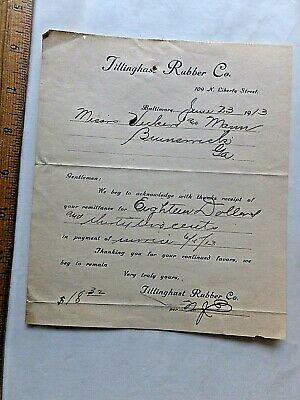 Tillinghast Rubber Co.
109 N. Liberty Street.
Baltimore, June 23 1913
Messrs
Brunswick
Ga.
Gentlemen:
We beg to acknowledge with thanks receipt of
your remittance for Eighteen Dollars
and thirty two cents
in payment of invoice 6/5/13
Thanking you for your continued favors, we
beg to remain
Very truly yours,
Tillinghast Rubber Co.
$18 32
per